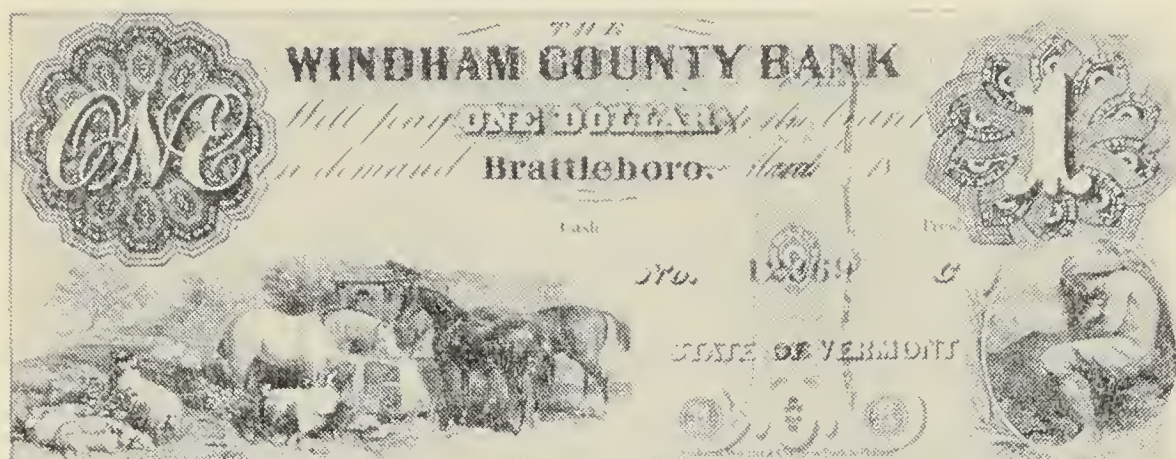 THE
WINDHAM COUNTY BANK
ONE
Will pay ONE DOLLAR to the bearer
1
on demand Brattleboro.
Cash
Pres
No. 12369
STATE OF VERMONT